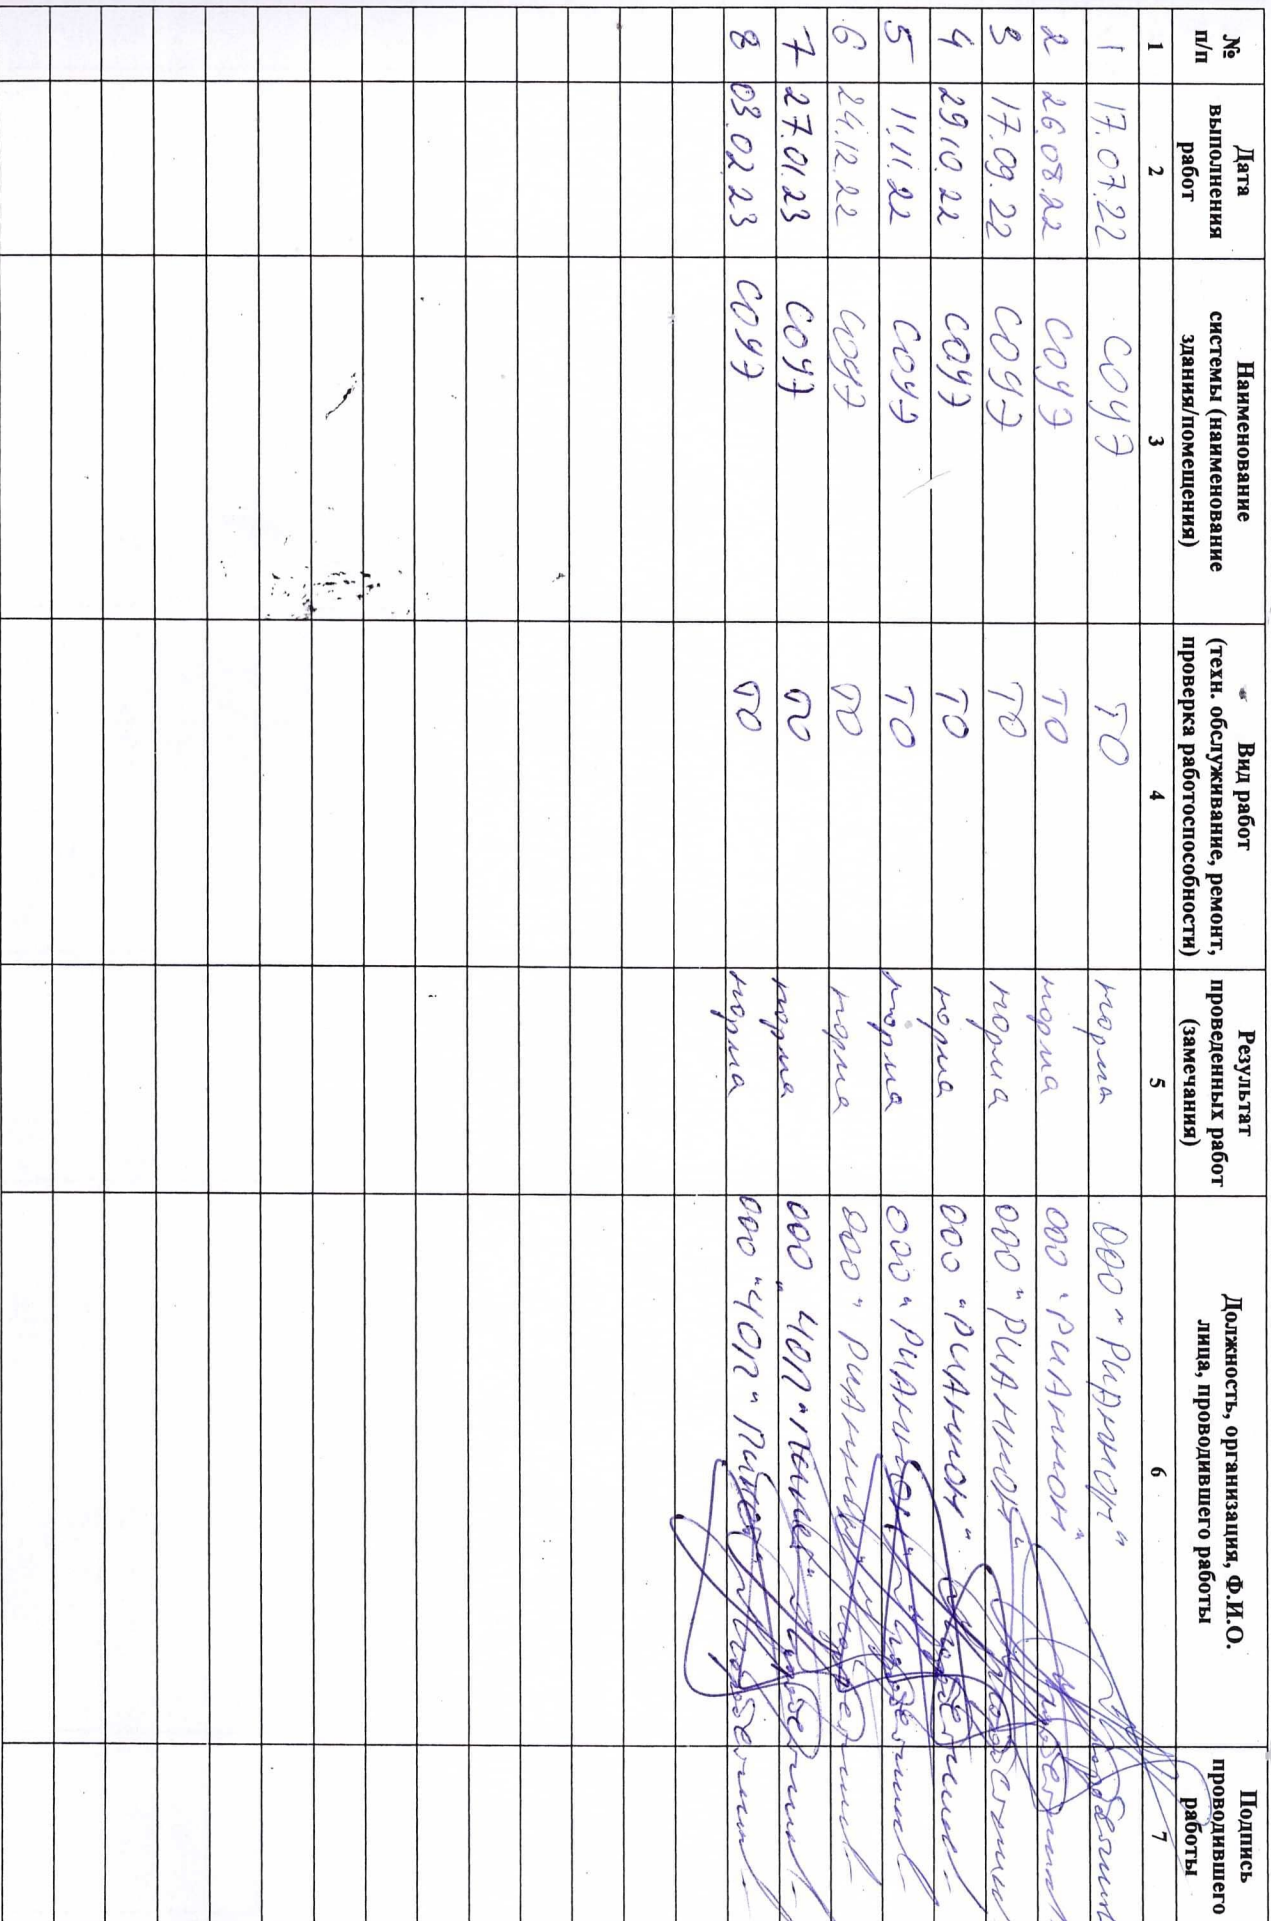 № п/п
Дата выполнения работ
Наименование системы (наименование здания/помещения)
Вид работ (техн. обслуживание, ремонт, проверка работоспособности)
Результат проведенных работ (замечания)
Должность, организация, Ф.И.О. лица, проводившего работы
Подпись проводившего работы
1 2 3 4 5 6 7
1 17.07.22 СОУЭ ТО норма ООО "РИАННОН"
2 26.08.22 СОУЭ ТО норма ООО "РИАННОН"
3 17.09.22 СОУЭ ТО норма ООО "РИАННОН"
4 29.10.22 СОУЭ ТО норма ООО "РИАННОН"
5 11.11.22 СОУЭ ТО норма ООО "РИАННОН"
6 24.12.22 СОУЭ ТО норма ООО "РИАННОН"
7 27.01.23 СОУЭ ТО норма ООО "ЧОП"
8 03.02.23 СОУЭ ТО норма ООО "ЧОП"